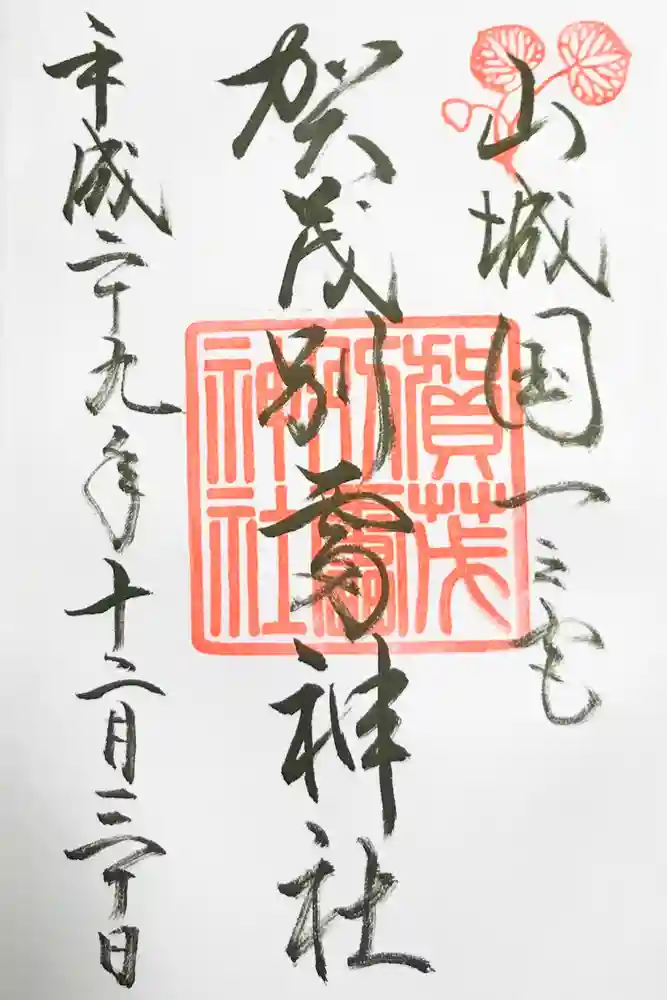 山城国一之宮
賀茂別雷神社
賀茂別雷神社
平成二十九年十二月三十日